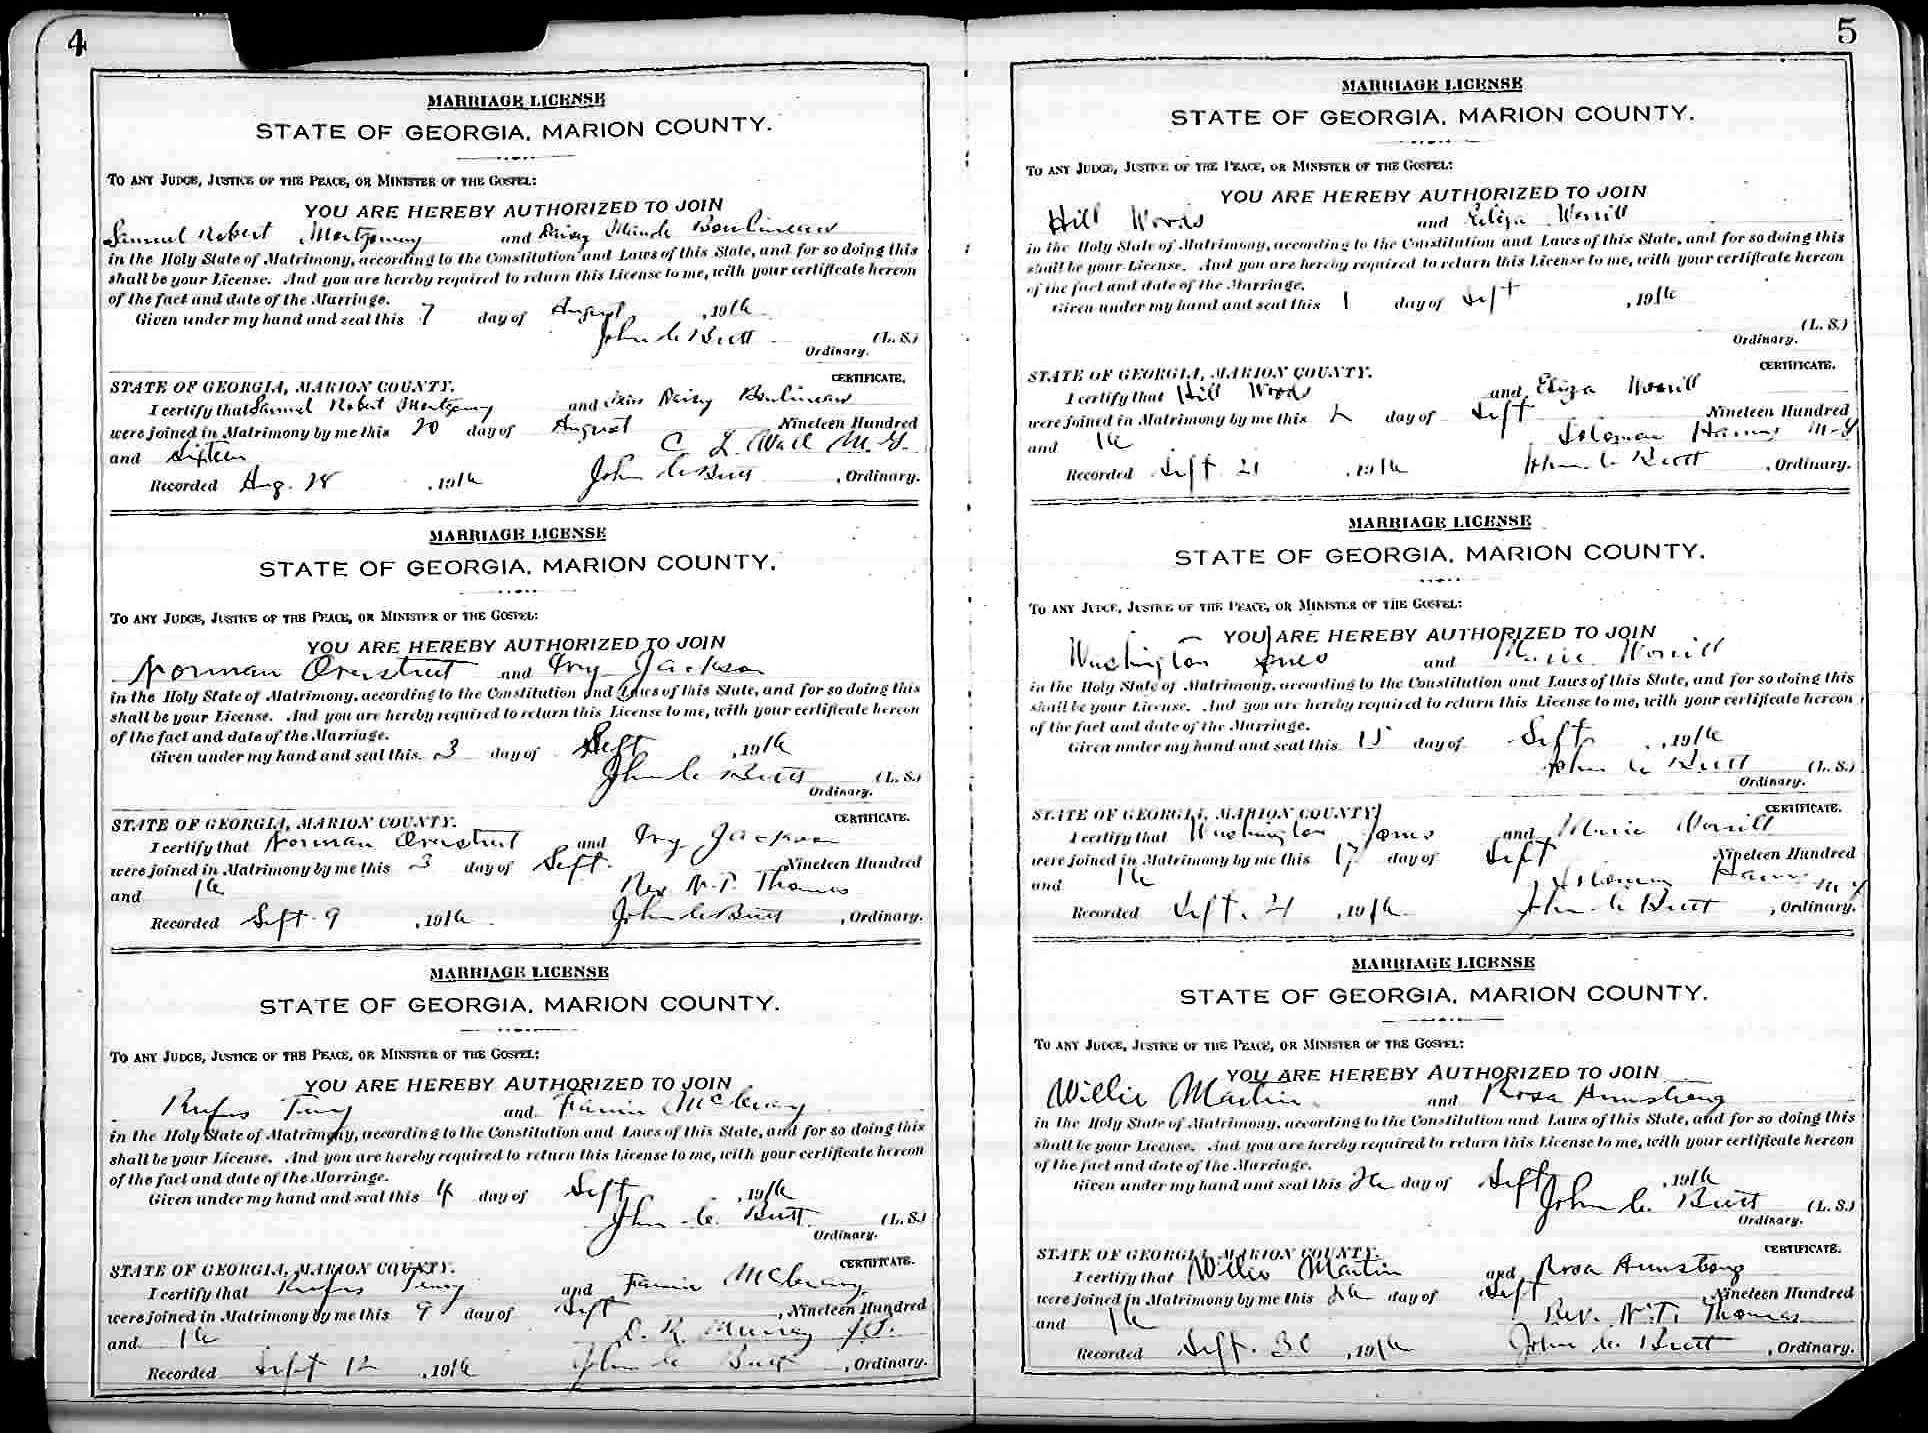 4
MARRIAGE LICENSE
STATE OF GEORGIA, MARION COUNTY.
TO ANY JUDGE, JUSTICE OF THE PEACE, OR MINISTER OF THE GOSPEL:
YOU ARE HEREBY AUTHORIZED TO JOIN
Samuel Robert Montgomery and Daisy Maude Boulineau
in the Holy State of Matrimony, according to the Constitution and Laws of this State, and for so doing this
shall be your License. And you are hereby required to return this License to me, with your certificate hereon
of the fact and date of the Marriage.
Given under my hand and seal this 7 day of August, 1916
John C Butt (L. S.)
Ordinary.
CERTIFICATE.
STATE OF GEORGIA, MARION COUNTY.
I certify that Samuel Robert Montgomery and Miss Daisy Boulineau
were joined in Matrimony by me this 20 day of August Nineteen Hundred
and Sixteen C L Wall M. G.
Recorded Aug. 28, 1916 John C Butt, Ordinary.
MARRIAGE LICENSE
STATE OF GEORGIA, MARION COUNTY.
TO ANY JUDGE, JUSTICE OF THE PEACE, OR MINISTER OF THE GOSPEL:
YOU ARE HEREBY AUTHORIZED TO JOIN
Norman Overstreet and Ivy Jackson
in the Holy State of Matrimony, according to the Constitution and Laws of this State, and for so doing this
shall be your License. And you are hereby required to return this License to me, with your certificate hereon
of the fact and date of the Marriage.
Given under my hand and seal this 3 day of Sept, 1916
John C Butt (L. S.)
Ordinary.
CERTIFICATE.
STATE OF GEORGIA, MARION COUNTY.
I certify that Norman Overstreet and Ivy Jackson
were joined in Matrimony by me this 3 day of Sept. Nineteen Hundred
and 16 Rev N. T. Thomas
Recorded Sept. 9, 1916 John C Butt, Ordinary.
MARRIAGE LICENSE
STATE OF GEORGIA, MARION COUNTY.
TO ANY JUDGE, JUSTICE OF THE PEACE, OR MINISTER OF THE GOSPEL:
YOU ARE HEREBY AUTHORIZED TO JOIN
Rufus Terry and Fannie McCleray
in the Holy State of Matrimony, according to the Constitution and Laws of this State, and for so doing this
shall be your License. And you are hereby required to return this License to me, with your certificate hereon
of the fact and date of the Marriage.
Given under my hand and seal this 4 day of Sept, 1916
John C. Butt (L. S.)
Ordinary.
CERTIFICATE.
STATE OF GEORGIA, MARION COUNTY.
I certify that Rufus Terry and Fannie McCleray
were joined in Matrimony by me this 9 day of Sept, Nineteen Hundred
and 16 D. R. Murray J.P.
Recorded Sept 12, 1916 John C Butt, Ordinary.
5
MARRIAGE LICENSE
STATE OF GEORGIA, MARION COUNTY.
TO ANY JUDGE, JUSTICE OF THE PEACE, OR MINISTER OF THE GOSPEL:
YOU ARE HEREBY AUTHORIZED TO JOIN
Hill Woods and Eliza Worrill
in the Holy State of Matrimony, according to the Constitution and Laws of this State, and for so doing this
shall be your License. And you are hereby required to return this License to me, with your certificate hereon
of the fact and date of the Marriage.
Given under my hand and seal this 1 day of Sept, 1916
(L. S.)
Ordinary.
CERTIFICATE.
STATE OF GEORGIA, MARION COUNTY.
I certify that Hill Woods and Eliza Worrill
were joined in Matrimony by me this 2 day of Sept Nineteen Hundred
and 16 Soloman M-G
Recorded Sept. 21, 1916 John C. Butt, Ordinary.
MARRIAGE LICENSE
STATE OF GEORGIA, MARION COUNTY.
TO ANY JUDGE, JUSTICE OF THE PEACE, OR MINISTER OF THE GOSPEL:
YOU ARE HEREBY AUTHORIZED TO JOIN
Washington Jones and Marie Worrill
in the Holy State of Matrimony, according to the Constitution and Laws of this State, and for so doing this
shall be your License. And you are hereby required to return this License to me, with your certificate hereon
of the fact and date of the Marriage.
Given under my hand and seal this 15 day of Sept, 1916
John C Butt (L. S.)
Ordinary.
CERTIFICATE.
STATE OF GEORGIA, MARION COUNTY.
I certify that Washington Jones and Marie Worrill
were joined in Matrimony by me this 17 day of Sept Nineteen Hundred
and 16 Soloman M G
Recorded Sept. 21, 1916 John C Butt, Ordinary.
MARRIAGE LICENSE
STATE OF GEORGIA, MARION COUNTY.
TO ANY JUDGE, JUSTICE OF THE PEACE, OR MINISTER OF THE GOSPEL:
YOU ARE HEREBY AUTHORIZED TO JOIN
Willie Martin and Rosa Armstrong
in the Holy State of Matrimony, according to the Constitution and Laws of this State, and for so doing this
shall be your License. And you are hereby required to return this License to me, with your certificate hereon
of the fact and date of the Marriage.
Given under my hand and seal this 26 day of Sept, 1916
John C. Butt (L. S.)
Ordinary.
CERTIFICATE.
STATE OF GEORGIA, MARION COUNTY.
I certify that Willie Martin and Rosa Armstrong
were joined in Matrimony by me this 26 day of Sept, Nineteen Hundred
and 16 Rev. N. T. Thomas
Recorded Sept. 30, 1916 John C. Butt, Ordinary.